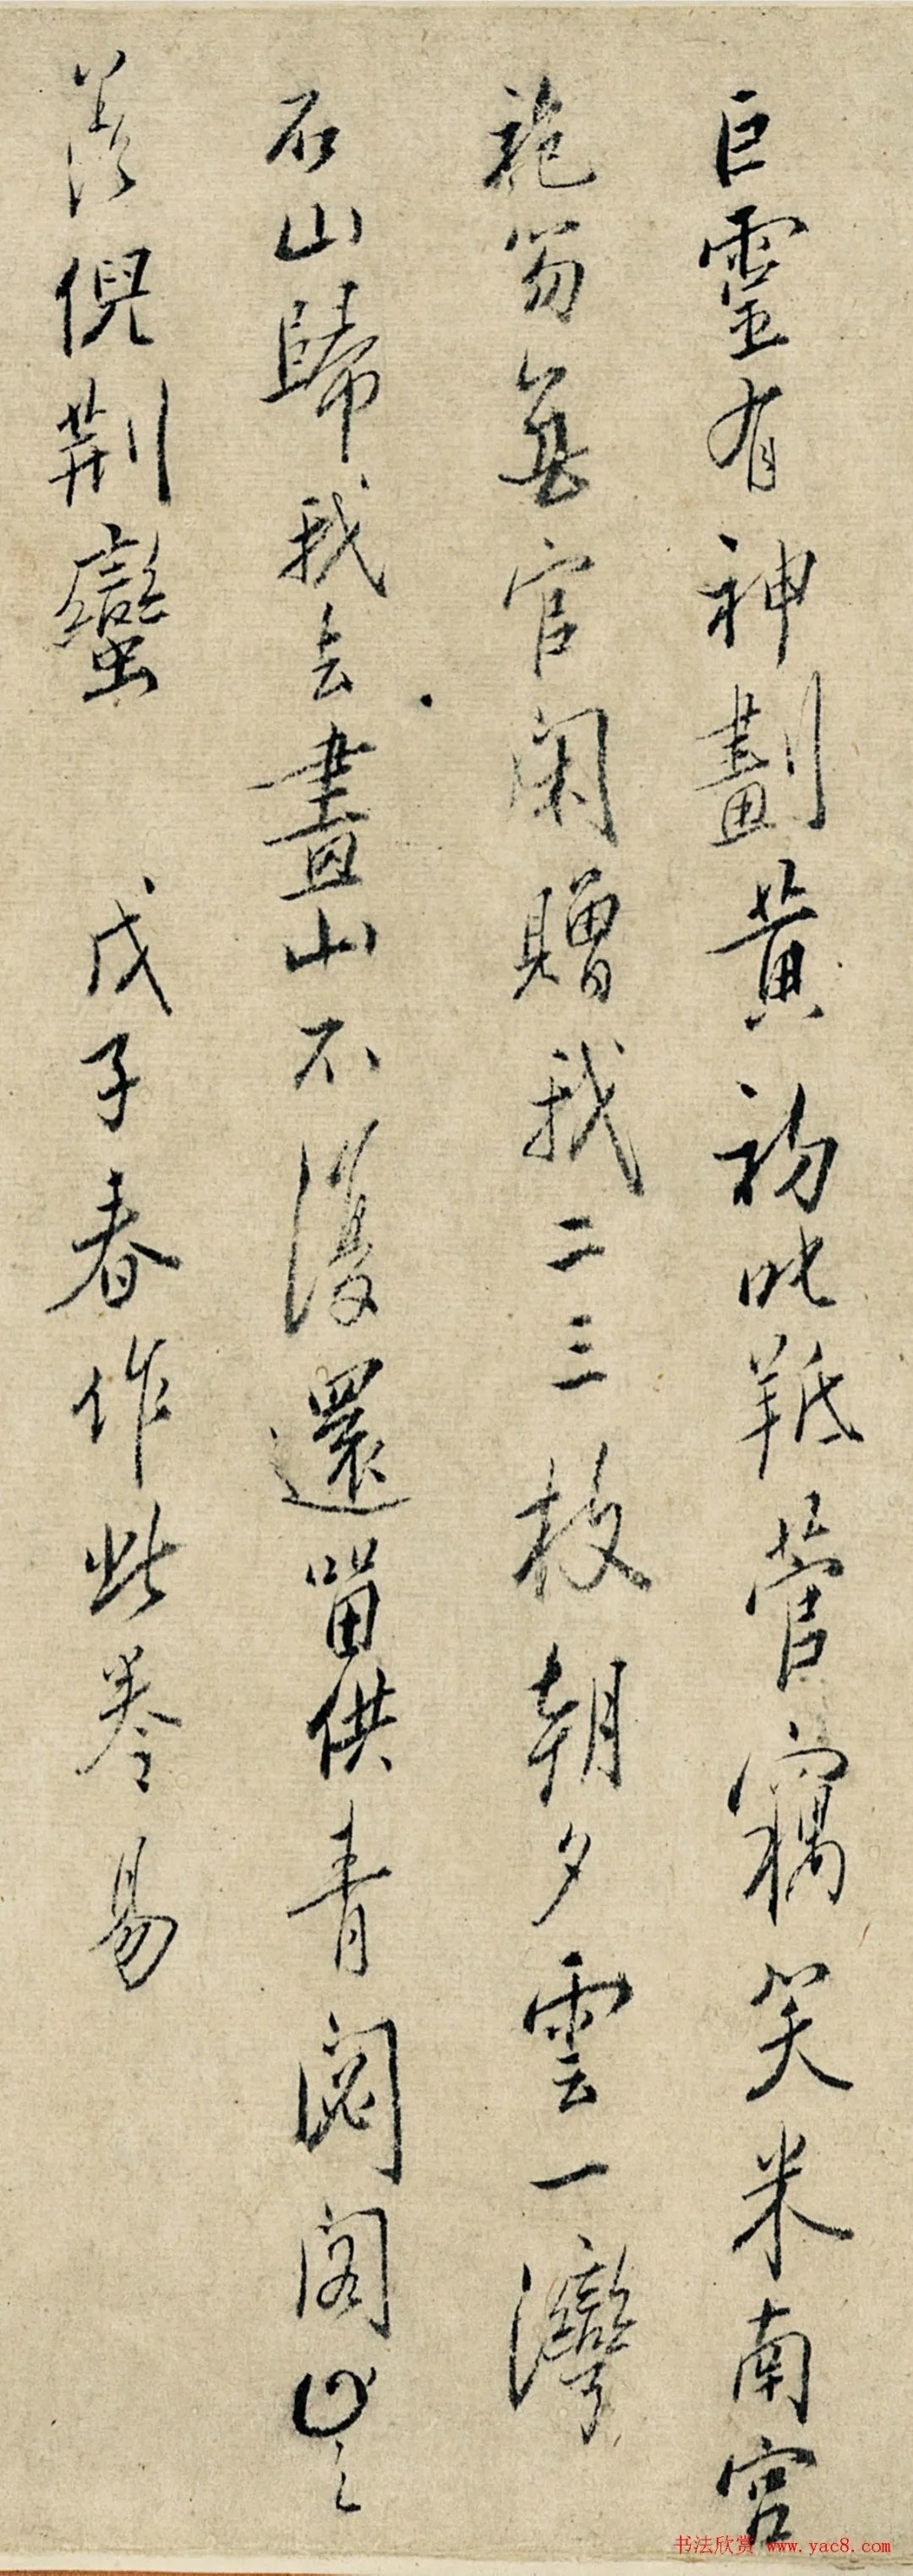 巨靈有神劃黃初叱羝菅窩笑米南宮
袍笏無官閑贈我二三枝朝夕雲一灣
石山歸我去畫山不復還留供青閟閣此之
倪荆蠻 戊子春作此卷易
书法欣赏 www.yac8.com